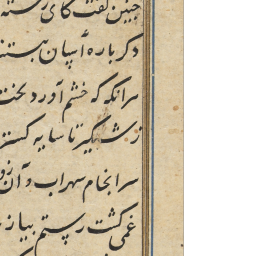 چنین گفت کای رسته
دگر باره اسپان ببستند
هر آنگه که خشم آورد بخت
ز شبگیر تا سایه گسترد
سرانجام سهراب و آن زو
غمی گشت رستم بیازید